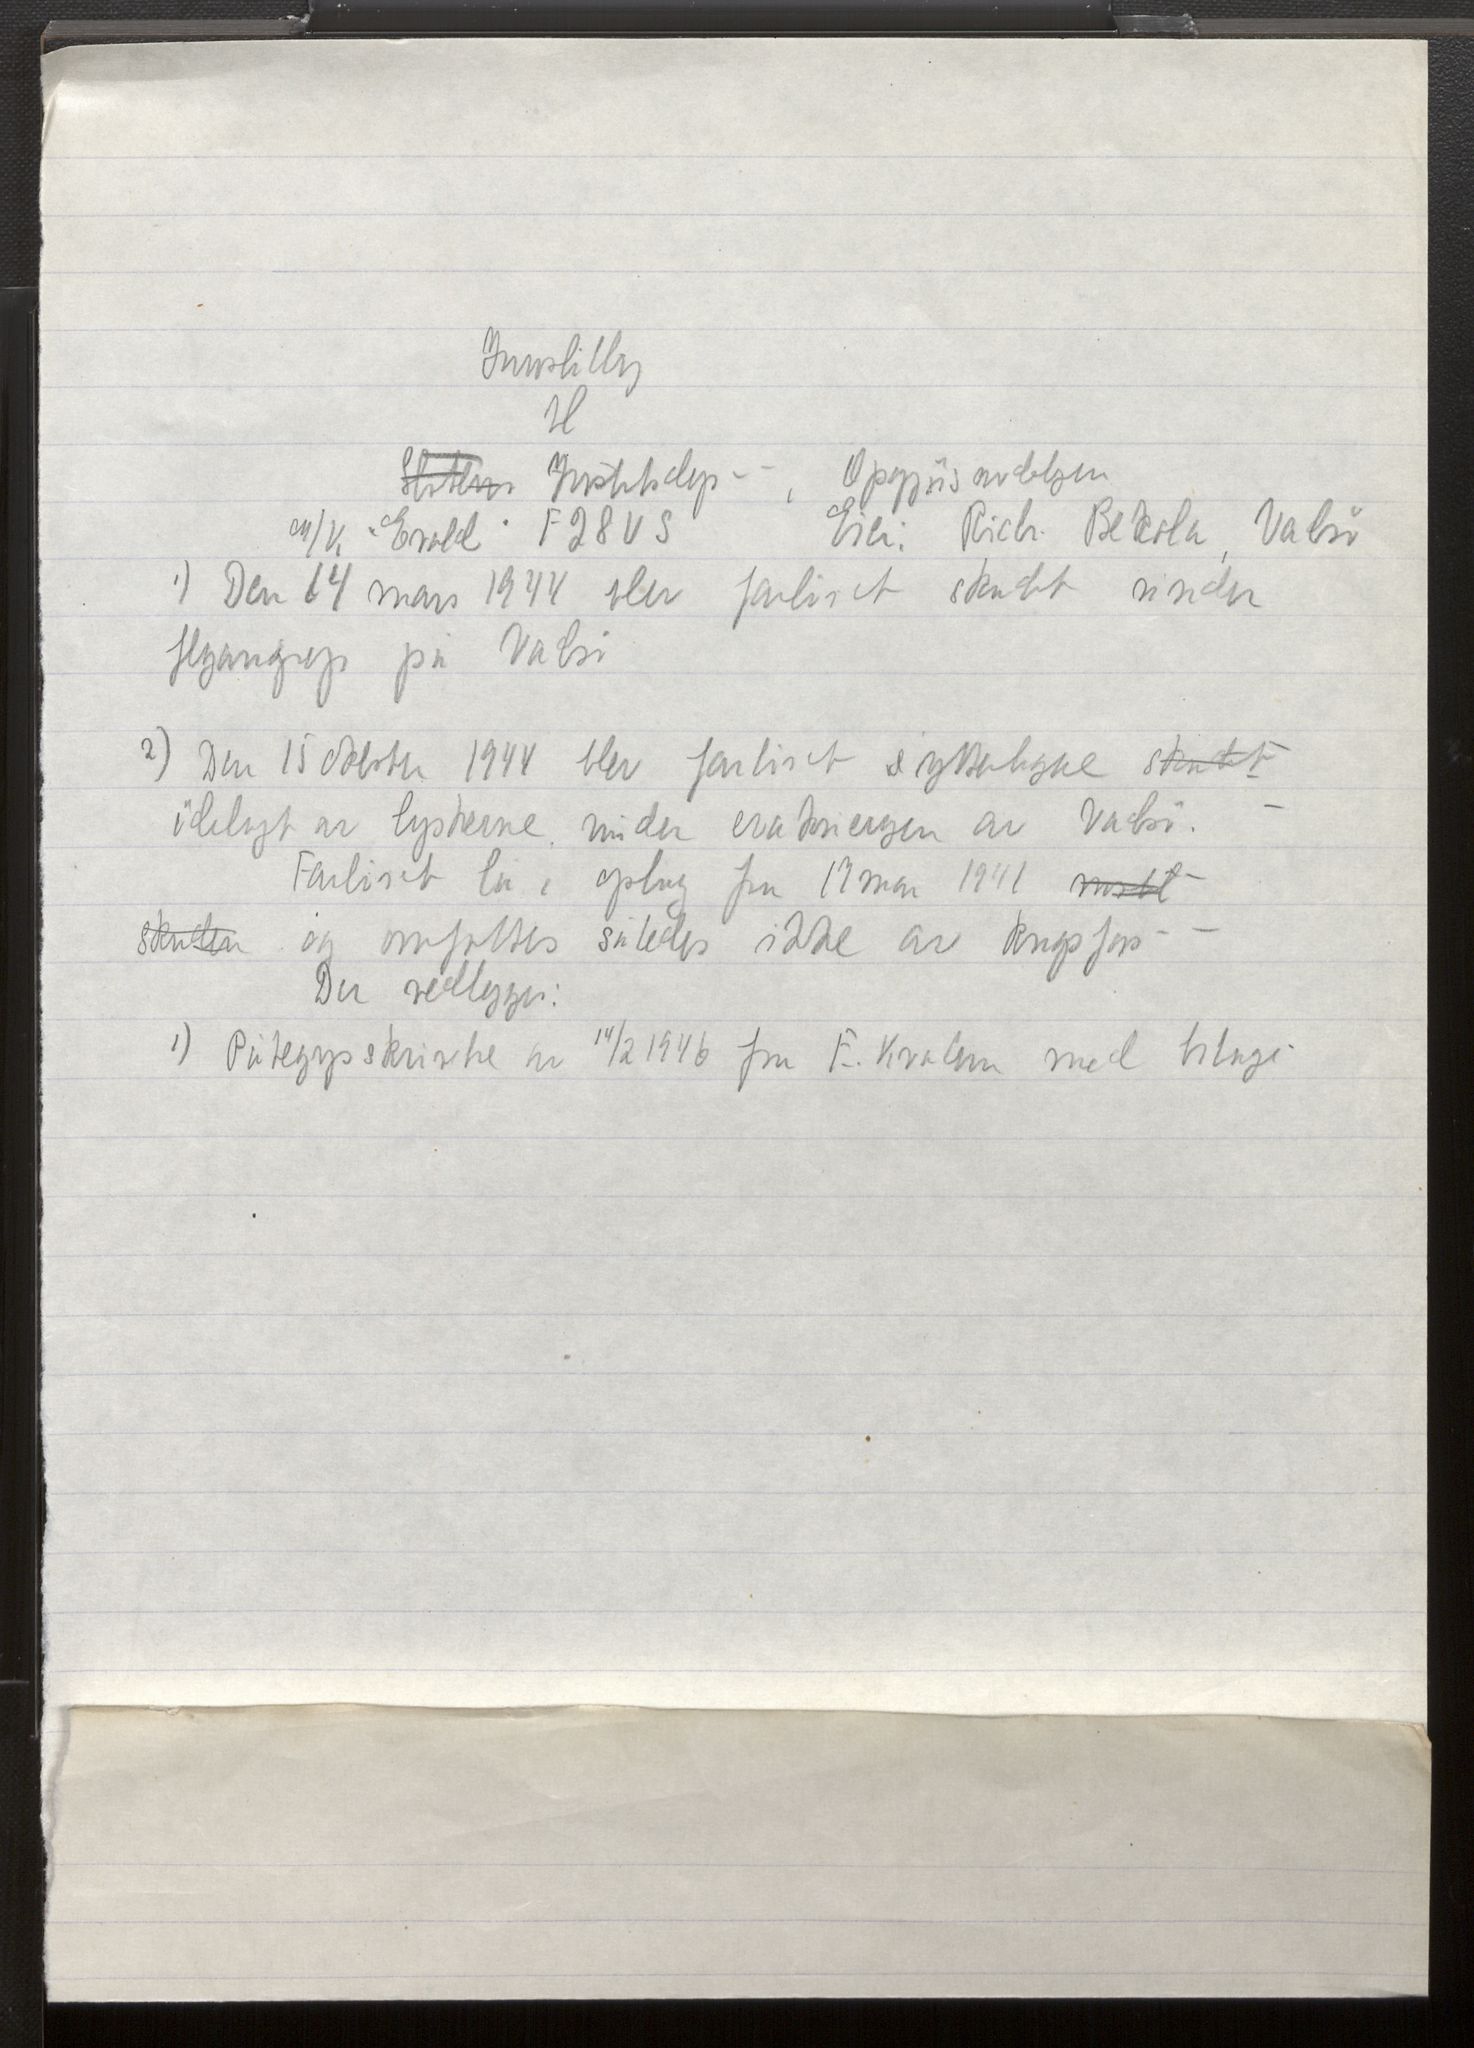 Innstilling
til
Statens Justisdep--, Oppgjörsavdelingen
M/K. "Evald" F28VS Eier: Rich. Bekola, Vadsö
1) Den 14 mars 1944 blev fartöiet skadet under
flyangrep på Vadsö
2) Den 15 oktober 1944 blev fartöiet skadet
ödelagt av tyskerne under evakueringen av Vadsö. -
Fartöiet lå i oplag fra 17 mai 1941
skaden og omfattes således ikke av krigsfors--
Der vedlegges:
1) Påtegningsskrivelse av 14/2 1946 fra F. Kvalsem med bilag